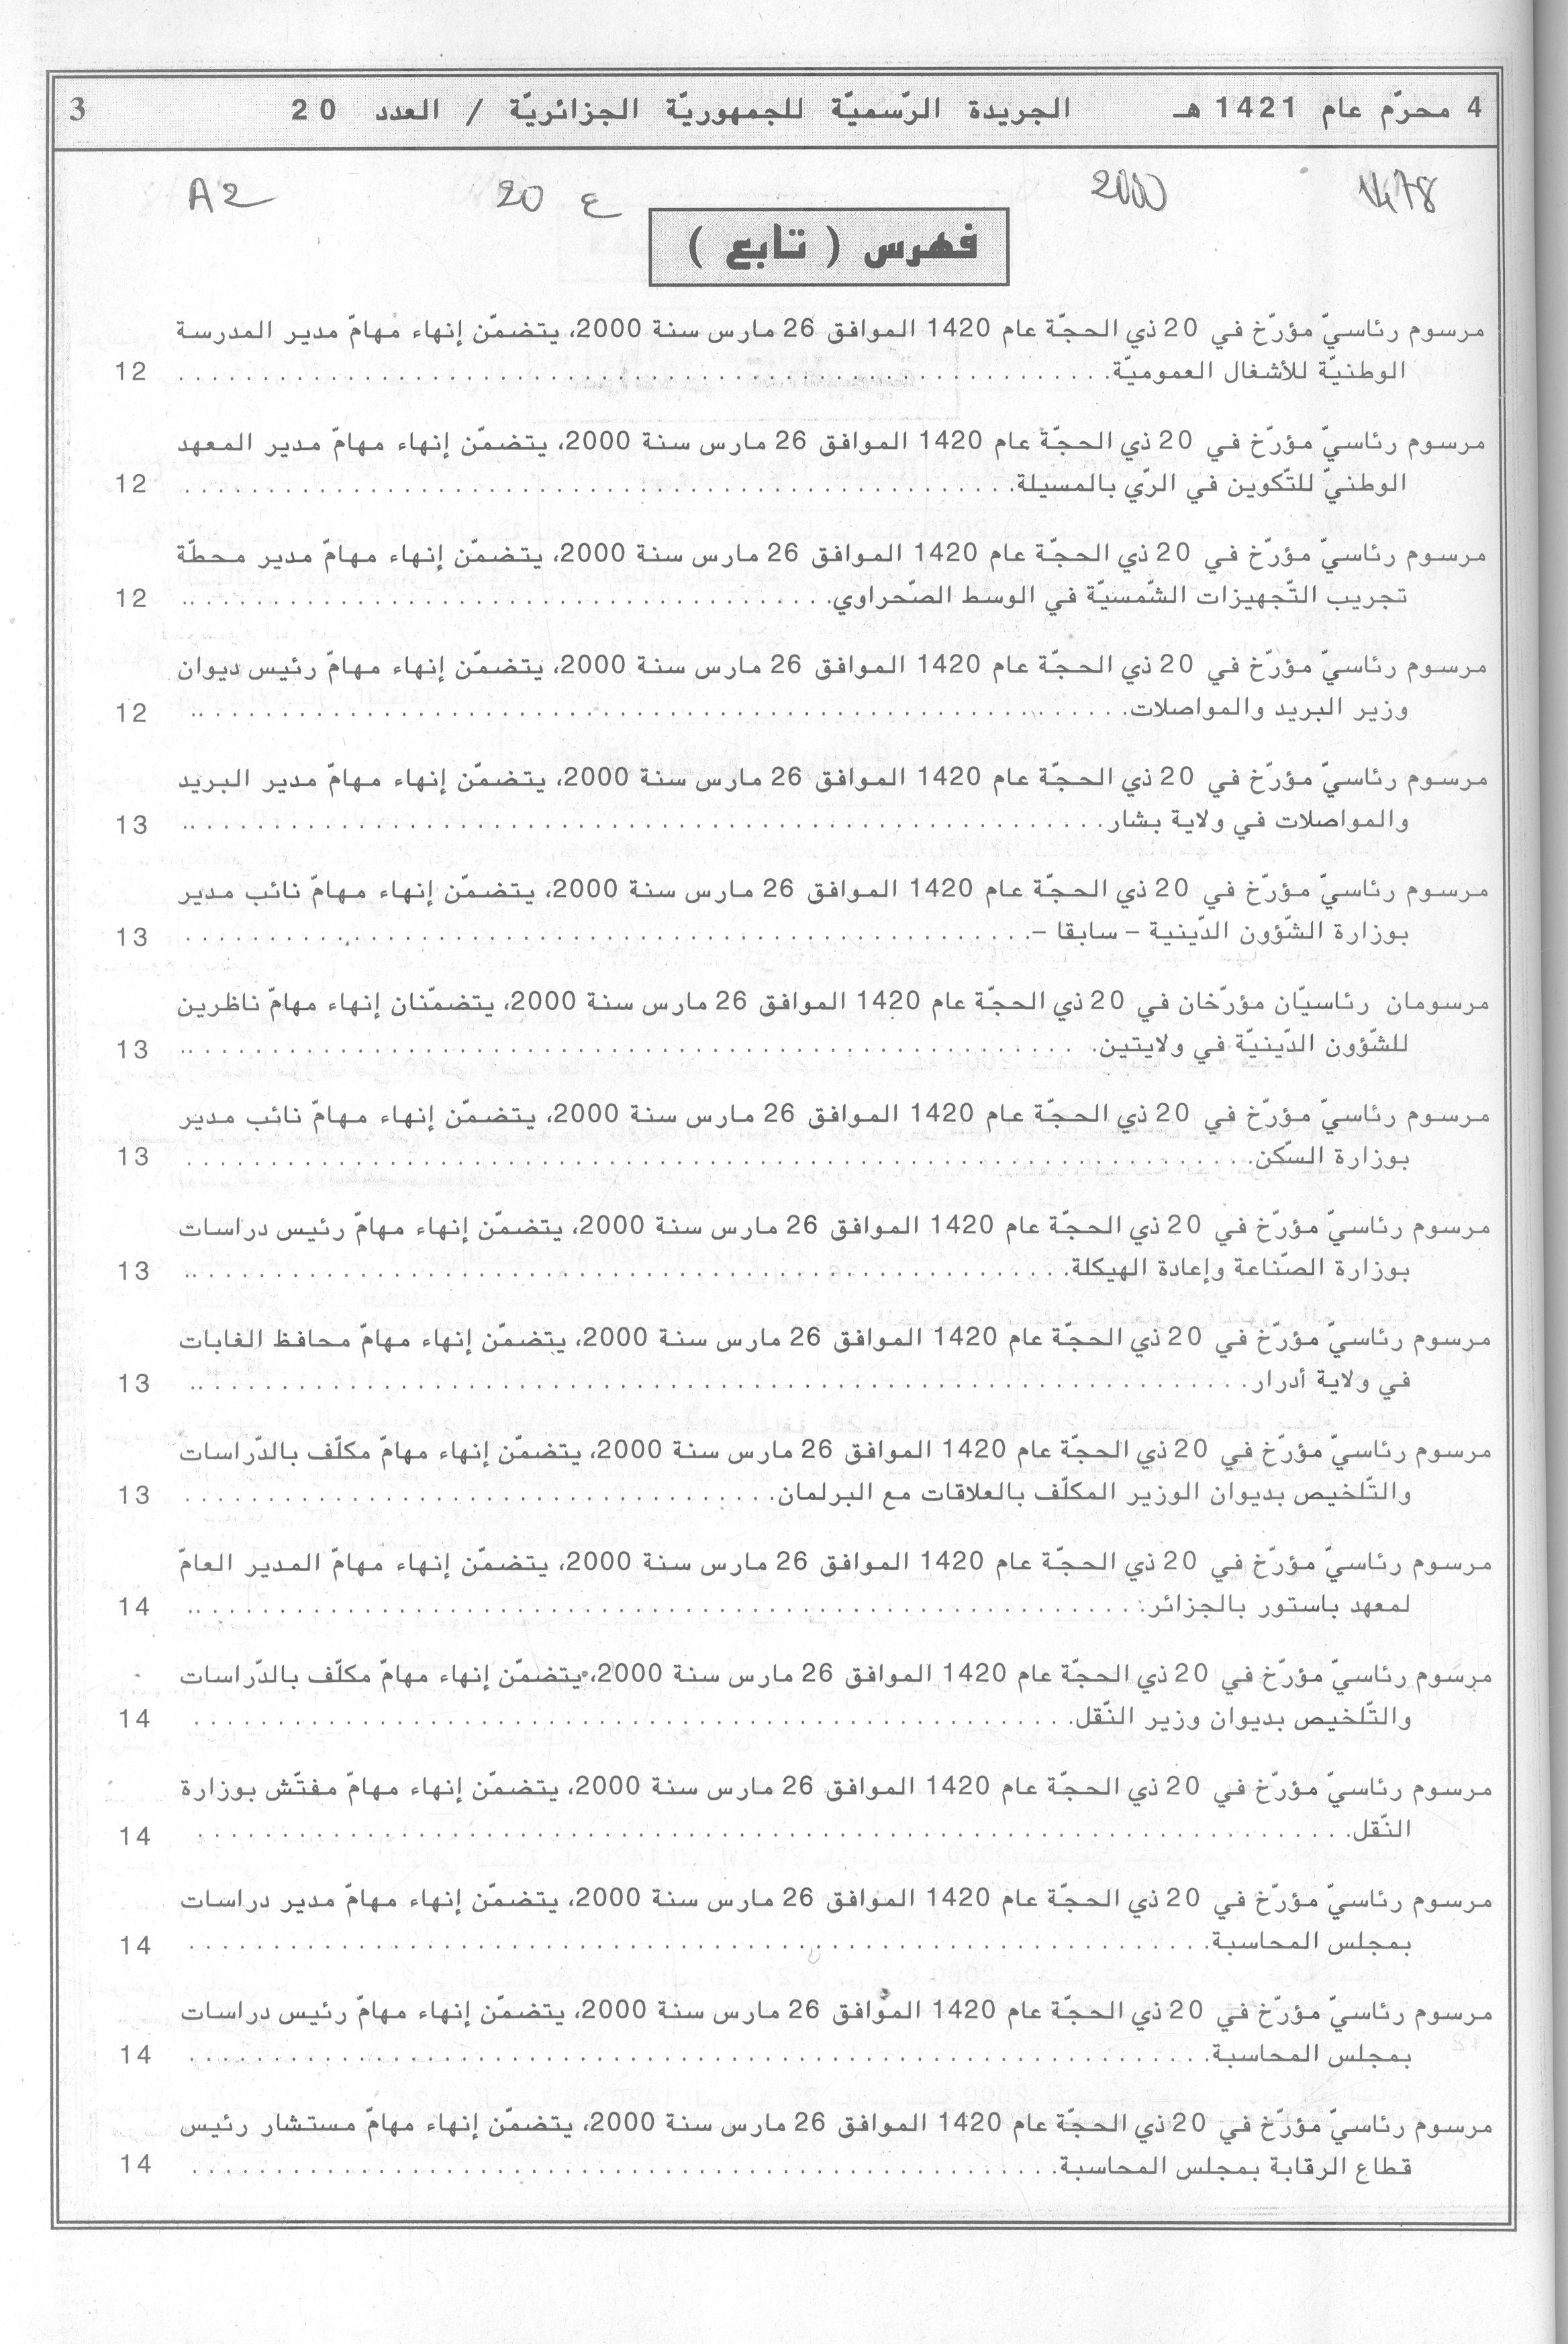 4 محرّم عام 1421 هـ الجريدة الرّسميّة للجمهوريّة الجزائريّة / العدد 20 3
1478 2000 ع 20 A2
فهرس ( تابع )
مرسوم رئاسيّ مؤرّخ في 20 ذي الحجّة عام 1420 الموافق 26 مارس سنة 2000، يتضمّن إنهاء مهامّ مدير المدرسة
الوطنيّة للأشغال العموميّة. 12
مرسوم رئاسيّ مؤرّخ في 20 ذي الحجّة عام 1420 الموافق 26 مارس سنة 2000، يتضمّن إنهاء مهامّ مدير المعهد
الوطنيّ للتّكوين في الرّي بالمسيلة. 12
مرسوم رئاسيّ مؤرّخ في 20 ذي الحجّة عام 1420 الموافق 26 مارس سنة 2000، يتضمّن إنهاء مهامّ مدير محطّة
تجريب التّجهيزات الشّمسيّة في الوسط الصّحراوي. 12
مرسوم رئاسيّ مؤرّخ في 20 ذي الحجّة عام 1420 الموافق 26 مارس سنة 2000، يتضمّن إنهاء مهامّ رئيس ديوان
وزير البريد والمواصلات. 12
مرسوم رئاسيّ مؤرّخ في 20 ذي الحجّة عام 1420 الموافق 26 مارس سنة 2000، يتضمّن إنهاء مهامّ مدير البريد
والمواصلات في ولاية بشار. 13
مرسوم رئاسيّ مؤرّخ في 20 ذي الحجّة عام 1420 الموافق 26 مارس سنة 2000، يتضمّن إنهاء مهامّ نائب مدير
بوزارة الشّؤون الدّينية – سابقا –. 13
مرسومان رئاسيّان مؤرّخان في 20 ذي الحجّة عام 1420 الموافق 26 مارس سنة 2000، يتضمّنان إنهاء مهامّ ناظرين
للشّؤون الدّينيّة في ولايتين. 13
مرسوم رئاسيّ مؤرّخ في 20 ذي الحجّة عام 1420 الموافق 26 مارس سنة 2000، يتضمّن إنهاء مهامّ نائب مدير
بوزارة السّكن. 13
مرسوم رئاسيّ مؤرّخ في 20 ذي الحجّة عام 1420 الموافق 26 مارس سنة 2000، يتضمّن إنهاء مهامّ رئيس دراسات
بوزارة الصّناعة وإعادة الهيكلة. 13
مرسوم رئاسيّ مؤرّخ في 20 ذي الحجّة عام 1420 الموافق 26 مارس سنة 2000، يتضمّن إنهاء مهامّ محافظ الغابات
في ولاية أدرار. 13
مرسوم رئاسيّ مؤرّخ في 20 ذي الحجّة عام 1420 الموافق 26 مارس سنة 2000، يتضمّن إنهاء مهامّ مكلّف بالدّراسات
والتّلخيص بديوان الوزير المكلّف بالعلاقات مع البرلمان. 13
مرسوم رئاسيّ مؤرّخ في 20 ذي الحجّة عام 1420 الموافق 26 مارس سنة 2000، يتضمّن إنهاء مهامّ المدير العامّ
لمعهد باستور بالجزائر. 14
مرسوم رئاسيّ مؤرّخ في 20 ذي الحجّة عام 1420 الموافق 26 مارس سنة 2000، يتضمّن إنهاء مهامّ مكلّف بالدّراسات
والتّلخيص بديوان وزير النّقل. 14
مرسوم رئاسيّ مؤرّخ في 20 ذي الحجّة عام 1420 الموافق 26 مارس سنة 2000، يتضمّن إنهاء مهامّ مفتّش بوزارة
النّقل. 14
مرسوم رئاسيّ مؤرّخ في 20 ذي الحجّة عام 1420 الموافق 26 مارس سنة 2000، يتضمّن إنهاء مهامّ مدير دراسات
بمجلس المحاسبة. 14
مرسوم رئاسيّ مؤرّخ في 20 ذي الحجّة عام 1420 الموافق 26 مارس سنة 2000، يتضمّن إنهاء مهامّ رئيس دراسات
بمجلس المحاسبة. 14
مرسوم رئاسيّ مؤرّخ في 20 ذي الحجّة عام 1420 الموافق 26 مارس سنة 2000، يتضمّن إنهاء مهامّ مستشار رئيس
قطاع الرقابة بمجلس المحاسبة. 14